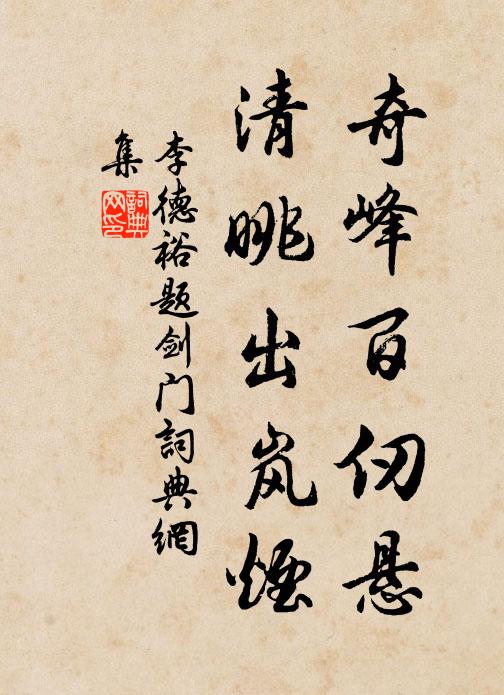 奇峰百仞悬
清眺出岚烟
李德裕题剑门詞典網
集
詞典網印